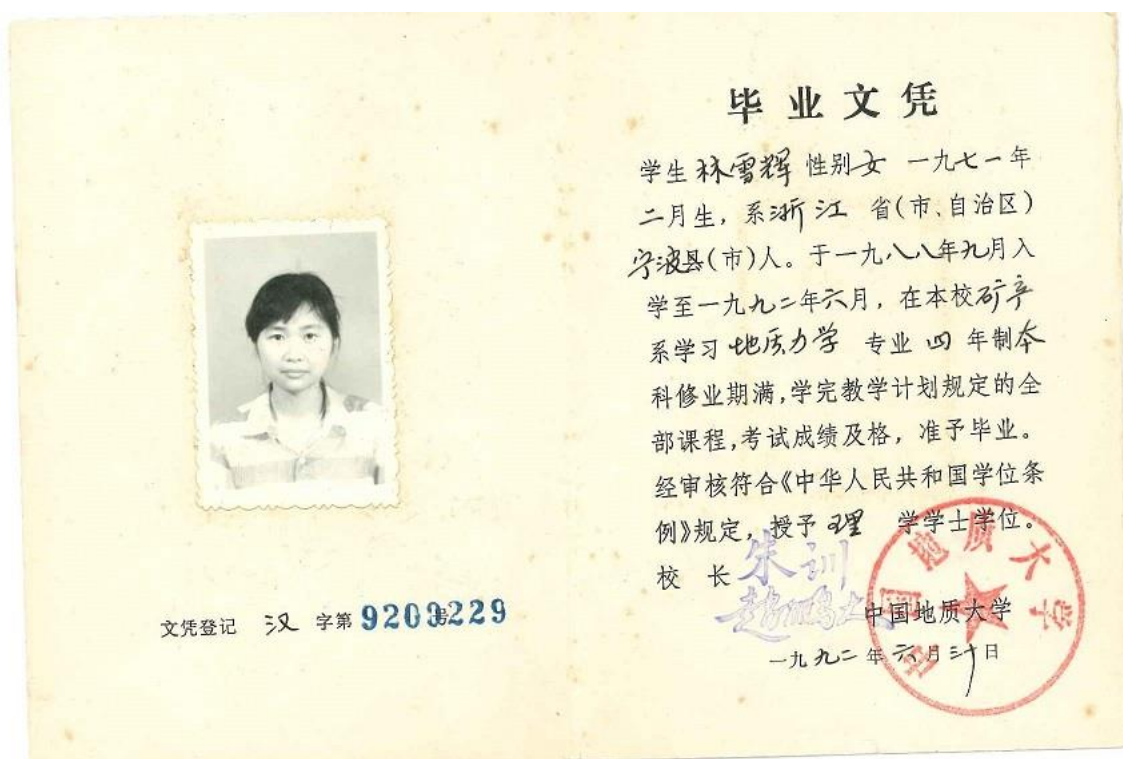 毕业文凭
学生林雪辉 性别女 一九七一年
二月生，系浙江 省(市、自治区)
宁波县(市)人。于一九八八年九月入
学至一九九二年六月，在本校矿产
系学习地质力学 专业 四 年制本
科修业期满，学完教学计划规定的全
部课程，考试成绩及格，准予毕业。
经审核符合《中华人民共和国学位条
例》规定，授予 理 学学士学位。
校 长 朱训
赵鹏大
中国地质大学
一九九二年六月三十日
中国地质大学
文凭登记 汉 字第 9209229 号